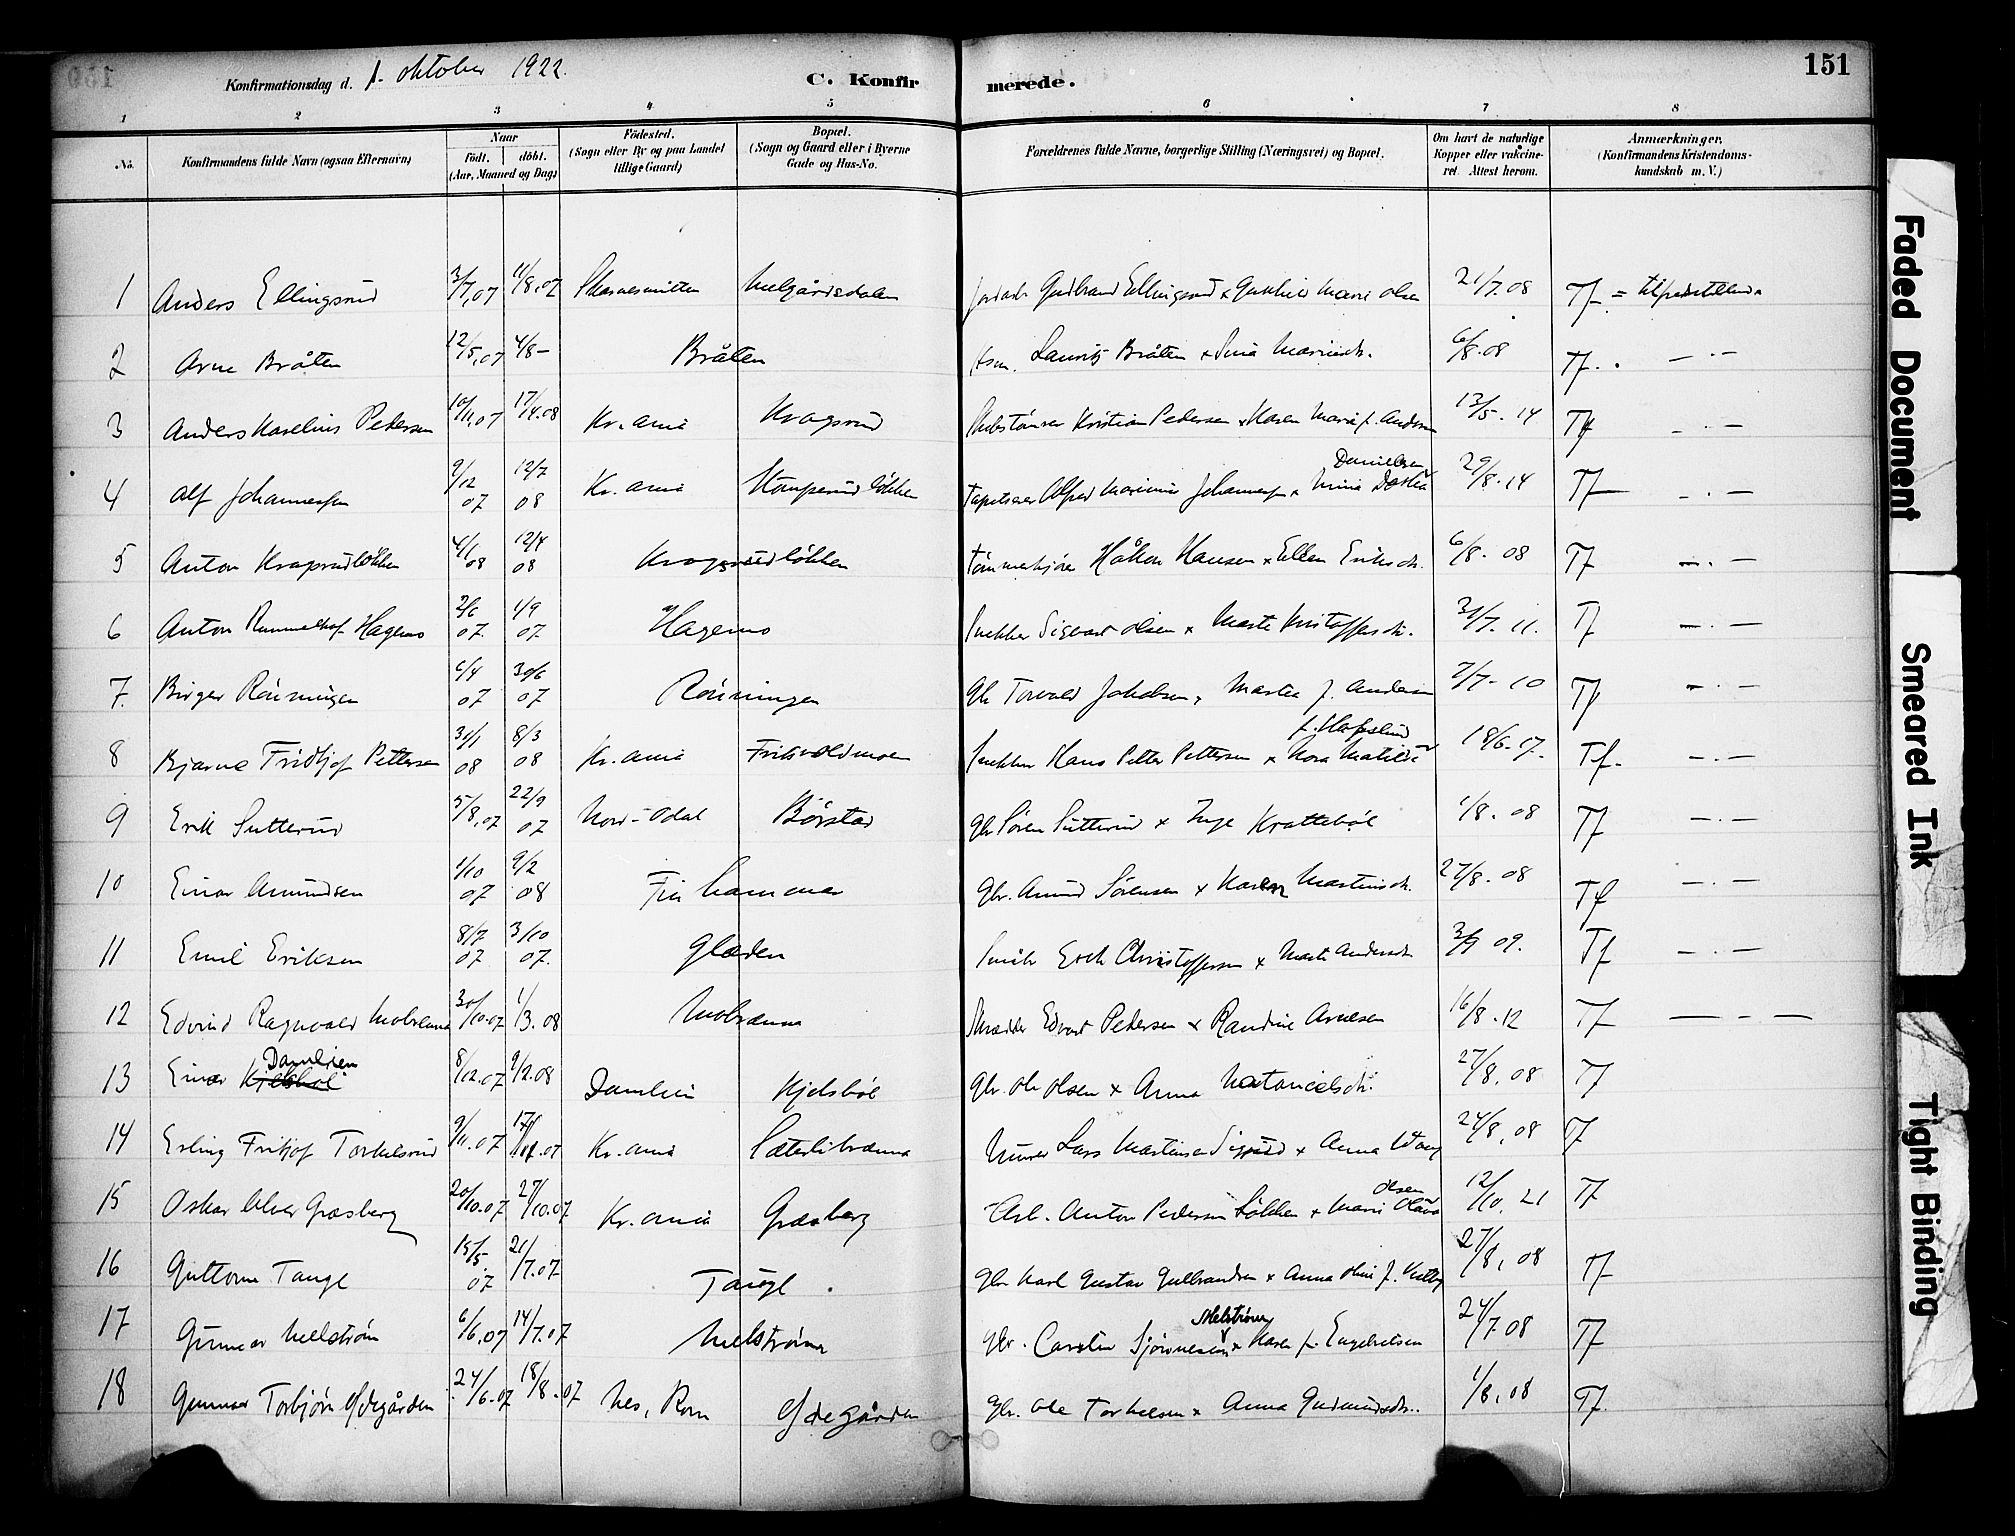 Konfirmationsdag d. 1. oktober 1922.
C. Konfirmerede.
151
1 2 3 4 5 6 7 8
No.
Konfirmandens fulde Navn (ogsaa Efternavn)
Naar født. døbt. (Aar, Maaned og Dag)
Födested. (Sogn eller By og paa Landet tillige Gaard)
Bopæl. (Sogn og Gaard eller i Byerne Gade og Hus-No.
Forældrenes fulde Navne, borgerlige Stilling (Næringsvei) og Bopæl.
Om havt de naturlige Kopper eller vakcineret. Attest herom.
Anmærkninger, (Konfirmandens Kristendomskundskab m. V.)
1 Anders Ellingsrud 3/7,07 4/8,07 21/7.08 Tf
2 Arne Bråten 12/5,07 4/8 — Bråten Lauritz Bråten 6/8.08 Tf. — . —
3 Anders Karelius Petersen 10/11,07 17/4.08 Kr.ania Kragsrud Kristian Pedersen x Karen Marie f. Andersen 13/5.14 Tf — . —
4 Alf Johannessen 9/12 07 12/7 08 Kr.ania Alfred Marinius Johannessen x Danielsen 29/8.14 Tf — . —
5 Anton Kragsrudløkken 4/1 08 12/4 08 Kragsrudløkken Tømmerkjører Håkon Hansen x Ellen Eriksdr. 6/8.08 Tf — . —
6 Anton Rummelhof Hagemo 2/6 07. 1/9 07. Hagemo Snekker Sigvart Olsen x Marte Kristoffersdr. 31/7.11. Tf — . —
7. Birger Rönningen 6/4 07 30/6 07 Rönningen Gbr Torvald Jakobsen x Martea f. Andersen 2/7-10 Tf — . —
8 Bjarne Fridtjof Pettersen 31/1 08 8/3 08 Kr.ania Snekker Hans Petter Pettersen x Nora Matilde 18/6.17. Tf. — . —
9 Erik Sutterud 5/8,07 22/9 07 Nord-Odal Børstad Gbr Søren Sutterud x Inge Krattebøl 1/8.08 Tf — . —
10 Einar Amundsen 1/10 07 9/2 08 Finhammar Gbr. Amund Sørensen x Karen Martinsdr. 27/8.08 Tf — . —
11 Emil Eriksen 8/7 07 3/10 07. Glæden Erik Christoffersen x Marte Andersdr 09. Tf — . —
12 Edvind Ragnvald 30/10.07 1/3.08 Skrædder Edvart Pedersen x Randine Arnesen 16/8.12 Tf — . —
13 Einar Kjelsbøl Damlien 8/12.07 9/2.08 Damlien Kjelsbøl Gbr. Ole Olsen x Anna Natanielsdr. 27/8,08 Tf
14 Erling Fritjof Torkelsrud 9/11.07 Kr.ania Sæterlibrænna Murer Lars Martinsen x Anna 24/8,08 Tf
15 Oskar Græsberg 20/10.07 27/10.07 Kr.ania Græsberg Arb. Anton Pedersen Løkken x Marie Olava Olsen 12/10.21 Tf
16 Guttorm Taugl 15/5. 07 21/7.07 Taugl. Gbr. Karl Gustav Gulbrandsen x Anna Oline f. 27/8,08 Tf
17 Gunnar Melstrøm 6/6,07 14/7.07 Melstrøm Gbr. Carsten Sjønnesen Melstrøm x Karen f. Engebretsen 24/7.08 Tf
18 Gunnar Torbjørn Ødegården 24/6.07 18/8.07 Nes, Rom Ødegården Gbr. Ole Torkelsen x Anna Gudmundsdr. 1/8,08 Tf.
Faded Document
Smeared Ink
Tight Binding